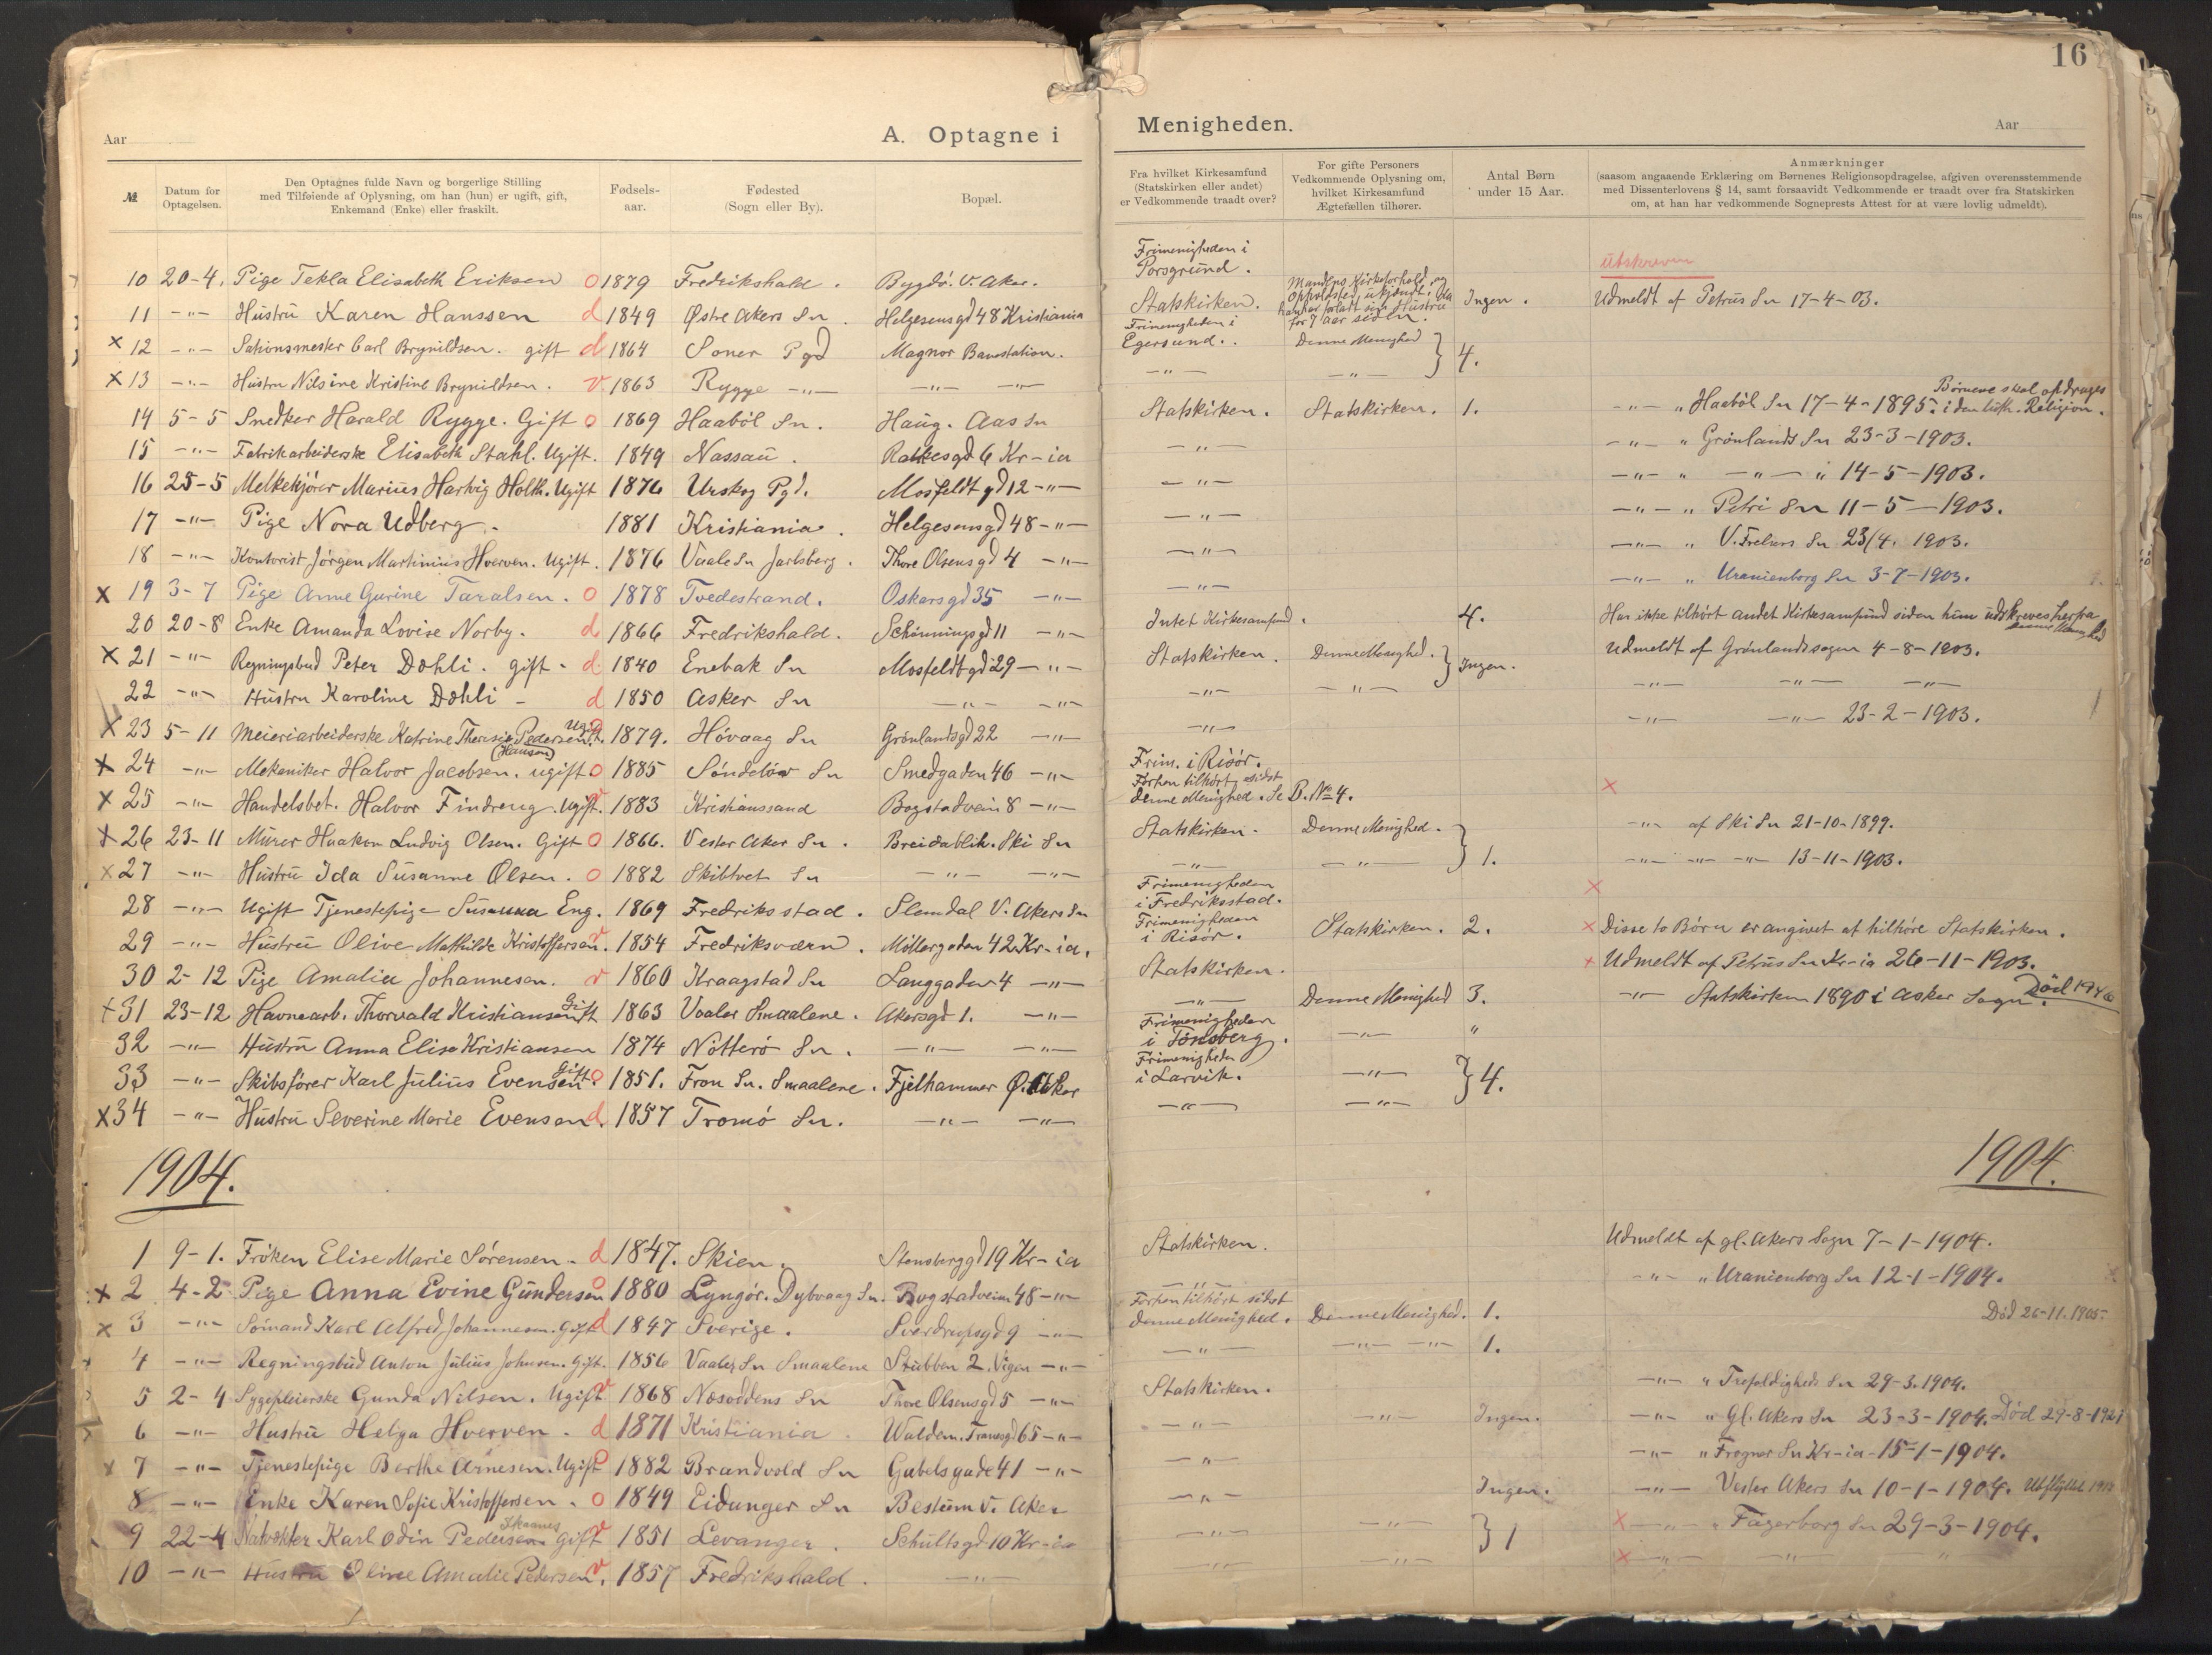 16
Aar
A. Optagne i Menigheden.
Aar
№
Datum for Optagelsen.
Den Optagnes fulde Navn og borgerlige Stilling med Tilføiende af Oplysning, om han (hun) er ugift, gift, Enkemand (Enke) eller fraskilt.
Fødsels-aar.
Fødested (Sogn eller By).
Bopæl.
Fra hvilket Kirkesamfund (Statskirken eller andet) er Vedkommende traadt over?
For gifte Personers Vedkommende Oplysning om, hvilket Kirkesamfund Ægtefællen tilhører.
Antal Børn under 15 Aar.
Anmærkninger (saasom angaaende Erklæring om Børnenes Religionsopdragelse, afgiven overensstemmende med Dissenterlovens § 14, samt forsaavidt Vedkommende er traadt over fra Statskirken om, at han har vedkommende Sogneprests Attest for at være lovlig udmeldt).
10 20-4. Pige Tekla Elisabeth Eriksen o 1879 Fredrikshald. Bygdö. V. Aker. Frimenigheden i Porsgrund. utskreven
11 -"- Hustru Karen Hanssen d 1849 Østre Akers Sn. Helgesensgd 48 Kristiania Statskirken. Mandens Kirkeforhold og opholdssted ukjendt, da han har forladt sin Hustru for 7 aar siden. Ingen. Udmeldt af Petrus Sn 17-4-03.
x 12 -"- Stationsmester Carl Brynildsen. gift d 1864 Soner Pgd Magnor Banestation. Frimenigheden i Egersund. Denne Menighed } 4.
x 13 -"- Hustru Nilsine Kristine Brynildsen. v 1863 Rygge -"- -"- -"- -"- -"-
14 5-5 Snedker Harald Rygge. Gift o 1869 Haaböl Sn. Haug. Aas Sn Statskirken. Statskirken. 1. -"- " Haaböl Sn 17-4-1895. Börnene skal opdrages i den luth. Religion.
15 -"- Fabrikarbeiderske Elisabeth Stahl. Ugift. 1849 Nassau. Ratkesgd 6 Kr-ia -"- -"- " Grönlands Sn 23-3-1903.
16 25-5 Melkekjörer Marius Hartvig Holth. Ugift 1876 Urskog Pgd. Mosfeldtgd 12 -"- -"- -"- " -"- " 14-5-1903.
17 -"- Pige Nora Udberg. 1881 Kristiania. Helgesensgd 48 -"- -"- -"- " Petri Sn 11-5-1903.
18 -"- Kontorist Jörgen Martinius Hverven. Ugift. 1876 Vaale Sn Jarlsberg. Thore Olsensgd 4 -"- -"- -"- " V. Frelsers Sn 23/4. 1903.
x 19 3-7 Pige Anne Gurine Taralsen. o 1878 Tvedestrand. Oskarsgd 35 -"- -"- -"- " Uranienborg Sn 3-7-1903.
20 20-8 Enke Amanda Lovise Norby. d 1866 Fredrikshald. Schönningsgd 11 -"- Intet Kirkesamfund. 4. Har ikke tilhört andet Kirkesamfund siden hun udskreves herfra denne Menighed
x 21 -"- Regningsbud Peter Dæhli. gift. d. 1840 Enebak Sn Mosfeldtgd 29 -"- Statskirken. Denne Menighed. } Ingen. Udmeldt af Grönlands sogn 4-8-1903.
22 -"- Hustru Karoline Dæhli - d 1850 Asker Sn -"- -"- -"- -"- -"- -"- -"-
x 23 5-11 Meieriarbeiderske Katrine Theresie Pedersen. (Hansen) Ugift. 1879. Hövaag Sn Grönlandsgd 22 -"- -"- -"- -"- 23-2-1903.
x 24 -"- Mekaniker Halvor Jacobsen. ugift o 1885 Söndelöv Sn Smedgaden 46 -"- Frim. i Risör.
x 25 -"- Handelsbet. Halvor Findreng. Ugift. 1883 Kristianssand Bogstadvein 8 -"- Forhen tilhört, sidst denne Menighed. Se B. № 4. x
x 26 23-11 Murer Haakon Ludvig Olsen. Gift o 1866. Vester Aker Sn. Breidablik. Ski Sn Statskirken. Denne Menighed. } 1. -"- af Ski Sn 21-10-1899.
x 27 -"- Hustru Ida Susanne Olsen. o 1882 Skibtvet Sn -"- -"- -"- -"- -"- -"- -"- 13-11-1903.
28 -"- Ugift Tjenestepige Susanna Eng. 1869 Fredriksstad. Slemdal V. Akers Sn Frimenigheden i Fredriksstad. x
29 -"- Hustru Olive Mathilde Kristoffersen. v 1854 Fredriksværn. Möllergaden 42 Kr-ia. Frimenigheden i Risör. Statskirken. 2. x Disse to Börn er angivet at tilhöre Statskirken.
30 2-12 Pige Amalia Johannesen. v 1860 Kraagstad Sn Langgaden 4 -"- Statskirken. x Udmeldt af Petrus Sn Kr-ia 26-11-1903.
x 31 23-12 Havnearb. Thorvald Kristiansen Gift 1863 Vaaler Smaalene. Akersgd 1. -"- -"- Denne Menighed 3. -"- Statskirken 1890 i Asker Sogn.
32 -"- Hustru Anna Elise Kristiansen 1874 Nötterö Sn. -"- -"- Frimenigheden i Tönsberg. -"- "
33 -"- Skibsförer Karl Julius Evensen. Gift o 1851. Fron Sn. Smaalene. Fjelhammer Ø. Aker Frimenigheden i Larvik. -"- } 4.
x 34 -"- Hustru Severine Marie Evensen. d. 1857 Tromö Sn. -"- -"- -"- -"-
1904. 1904.
1 9-1. Fröken Elise Marie Sørensen. d 1847. Skien. Stensberggd 19 Kr-ia Statskirken. Udmeldt af gl. Akers Sogn 7-1-1904.
x 2 4-2 Pige Anna Evine Gundersen o 1880 Lyngör. Dybvaag Sn. Bogstadveien 48 -"- -"- -"- " Uranienborg Sn 12-1-1904.
x 3 -"- Sömand Karl Alfred Johannesen. Gift d 1847 Sverige. Sverdrupsgd 9 -"- Forhen tilhört sidst denne Menighed. Denne Menighed. 1. Död 26-11-1905.
4 -"- Regningsbud Anton Julius Johnsen. Gift. 1856 Vaaler Sn Smaalene Stubben 2. Vigen -"- -"- -"- -"- 1.
5 2-4 Sygepleierske Gunda Nilsen. Ugift v 1868 Næsoddens Sn Thore Olsensgd 5 -"- Statskirken. -"- " Trefoldigheds Sn 29-3-1904.
6 -"- Hustru Helga Hverven. d 1871 Kristiania. Waldem. Thranesgd 65 -"- -"- -"- Ingen. -"- " Gl. Akers Sn 23-3-1904. Död 29-8-1921
x 7 -"- Tjenestepige Berthe Arnesen. Ugift o 1882 Brandvold Sn Gabelsgade 41 -"- -"- -"- " Frogner Sn Kr-ia 15-1-1904.
8 -"- Enke Karen Sofie Kristoffersen. o 1849 Eidanger Sn Bestum V. Aker -"- Ingen. -"- Vester Akers Sn 10-1-1904.
9 22-4 Natvækter Karl Odin Pedersen gift v 1851 Levanger. Schultsgd 10 Kr-ia -"- -"- } 1 x -"- " Fagerborg Sn 29-3-1904.
10 -"- Hustru Oline Amalie Pedersen. v. 1857 Fredrikshald. -"- -"- -"- x -"- -"- "